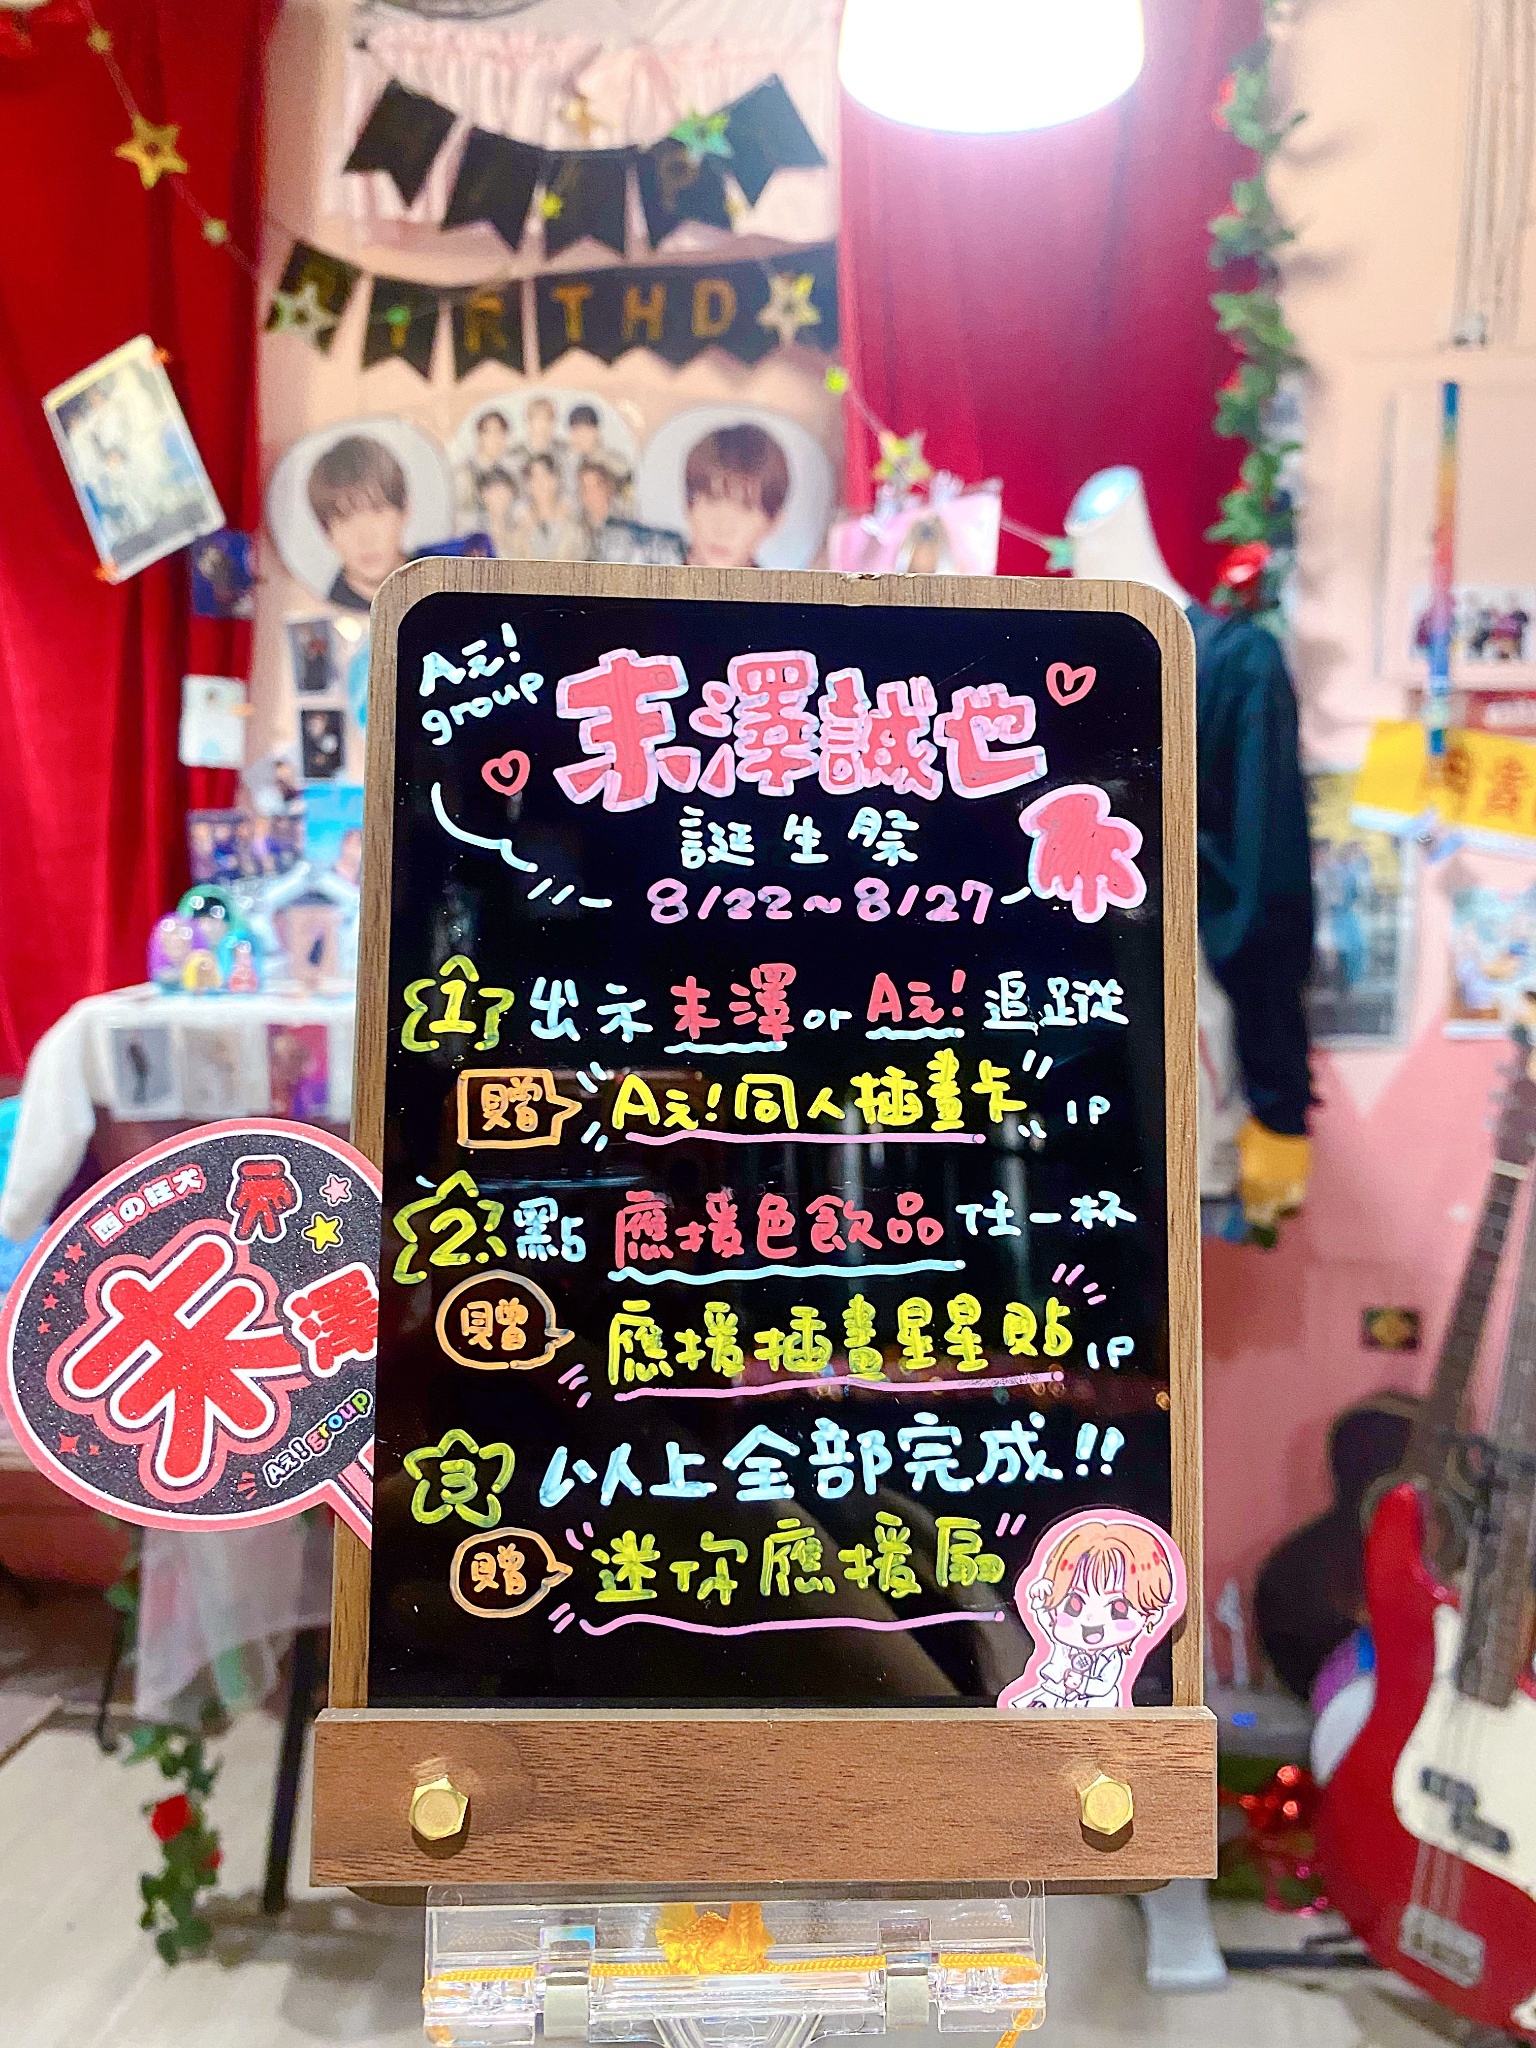 RTHD
Aえ!
group
末澤誠也
誕生祭
8/22~8/27
1 出示 末澤 or Aえ! 追蹤
贈 Aえ!同人插畫卡 1P
2. 點 應援色飲品 任一杯
贈 應援插畫星星貼 1P
3 以上全部完成!!
贈 迷你應援扇
西の狂犬
末澤
Aえ!group